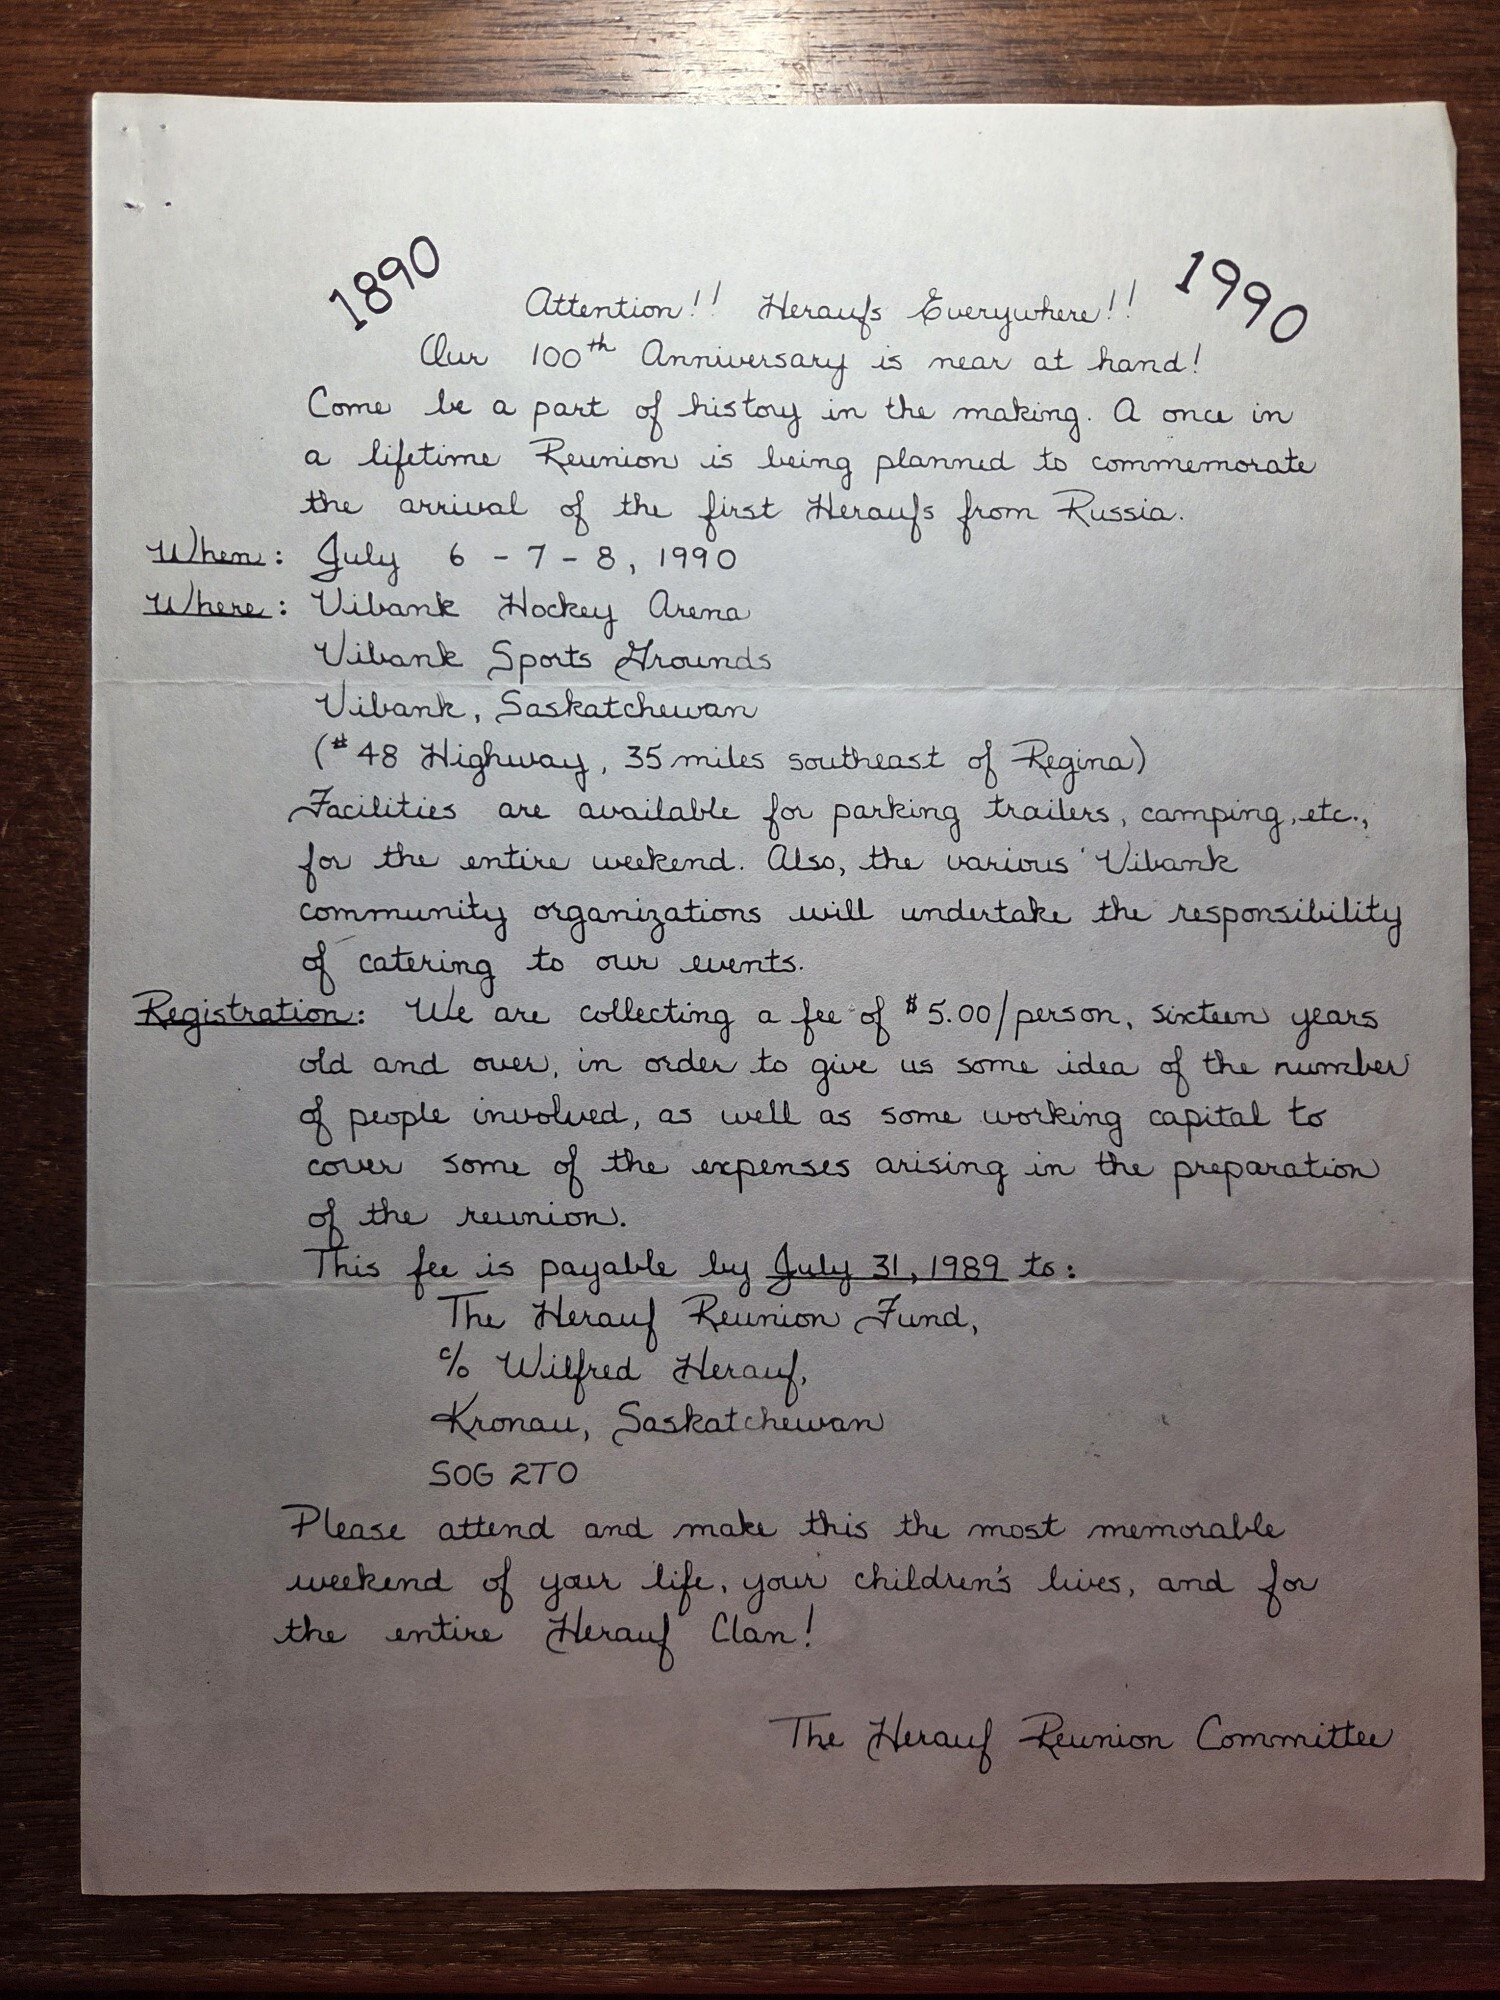 1890 1990
Attention!! Heraufs Everywhere!!
Our 100th Anniversary is near at hand!
Come be a part of history in the making. A once in
a lifetime Reunion is being planned to commemorate
the arrival of the first Heraufs from Russia.
When: July 6 - 7 - 8, 1990
Where: Vibank Hockey Arena
Vibank Sports Grounds
Vibank, Saskatchewan
(#48 Highway, 35 miles southeast of Regina)
Facilities are available for parking trailers, camping, etc.,
for the entire weekend. Also, the various Vibank
community organizations will undertake the responsibility
of catering to our events.
Registration: We are collecting a fee of $5.00/person, sixteen years
old and over, in order to give us some idea of the number
of people involved, as well as some working capital to
cover some of the expenses arising in the preparation
of the reunion.
This fee is payable by July 31, 1989 to:
The Herauf Reunion Fund,
c/o Wilfred Herauf,
Kronau, Saskatchewan
S0G 2T0
Please attend and make this the most memorable
weekend of your life, your children's lives, and for
the entire Herauf Clan!
The Herauf Reunion Committee